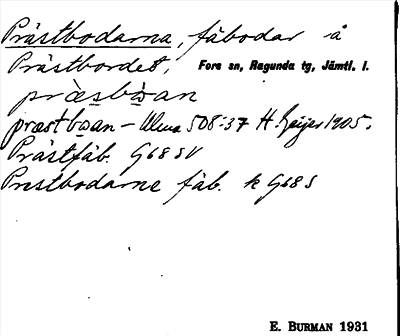 Prästbodarna, fäbodar å
Prästbordet, Fors sn, Ragunda tg, Jämtl. l.
præ̀sbò̱an
præstbo̱an – Ulma 508:37 H. Geijer 1905.
Prästfäb. G68 SV
Prestbodarne fäb. k G68 S
E. BURMAN 1931